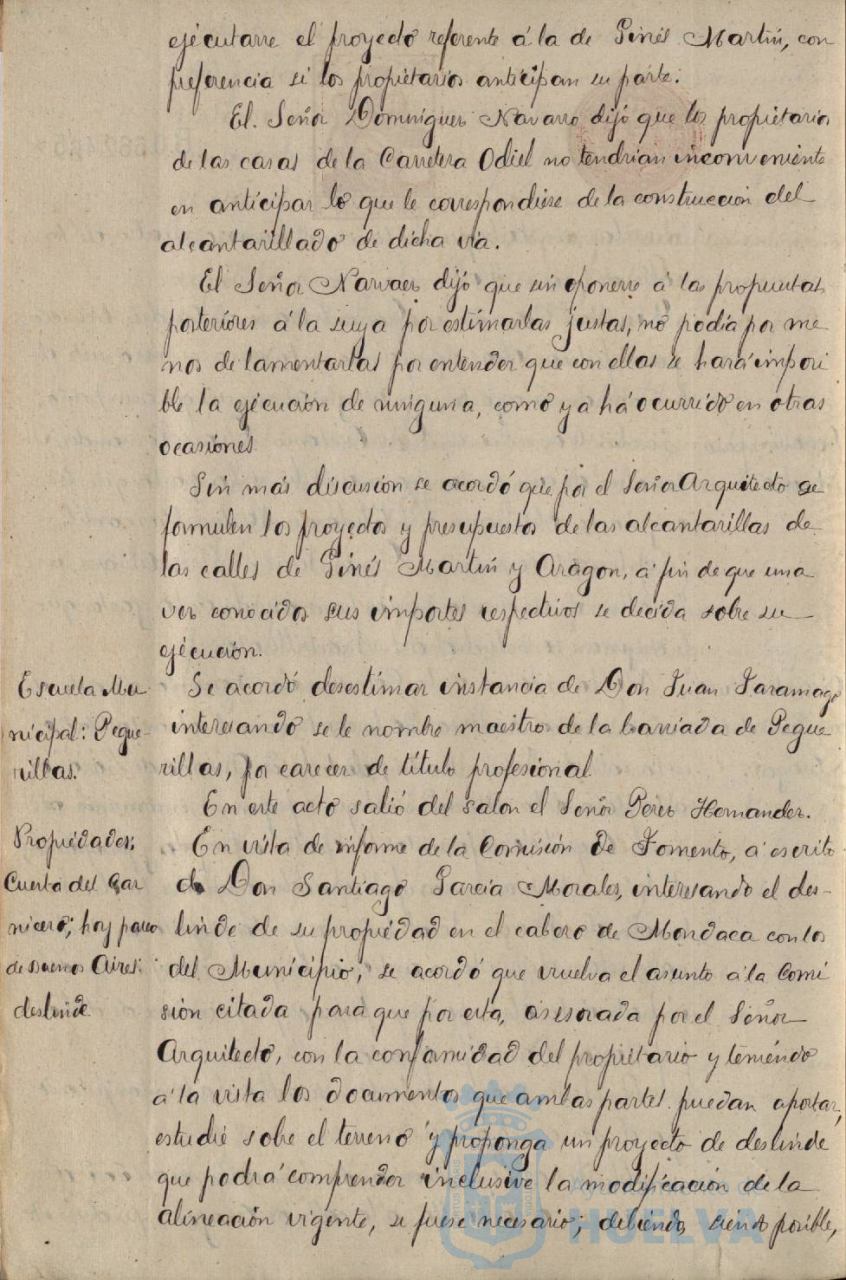 ejecutarse el proyecto referente á la de Ginés Martín, con
preferencia si los propietarios anticipan su parte.
El Señor Domínguez Navarro dijó que los propietarios
de las casas de la Carretera Odiel no tendrían inconveniente
en anticipar lo que le correspondiese de la construccion del
alcantarillado de dicha vía.
El Señor Narvaez dijó que sin oponerse á las propuestas
posteriores á la suya por estimarlas justas, no podía por me
nos de lamentarlas por entender que con ellas se hará imposi
ble la ejecución de ninguna, como ya há ocurrido en otras
ocasiones
Sin más discusión se acordó que por el Señor Arquitecto se
formulen los proyectos y presupuestos de las alcantarillas de
las calles de Ginés Martín y Aragon, á fin de que una
vez conocidos sus importes respectivos se decida sobre su
ejecución.
Escuela Mu
nicipal: Pegue-
rillas.
Se acordó desestimar instancia de Don Juan Jaramago
interesando se le nombre maestro de la barriada de Pegue
rillas, por carecer de título profesional
En este acto salió del salon el Señor Perez Hernandez.
Propiedades:
Cuesta del Car
nicero; hoy paseo
de Buenos Aires:
deslinde
En vista de informe de la Comisión de Fomento, á escrito
de Don Santiago García Morales, interesando el des-
linde de su propiedad en el cabezo de Mondaca con los
del Municipio; se acordó que vuelva el asunto á la Comi
sión citada para que por esta, asesorada por el Señor
Arquitecto, con la conformidad del propietario y teniendo
á la vista los documentos que ambas partes puedan aportar,
estudié sobre el terreno y proponga un proyecto de deslinde
que podrá comprender inclusive la modificación de la
alineación vigente, si fuese necesario; debiendo, siendo posible,
HUELVA